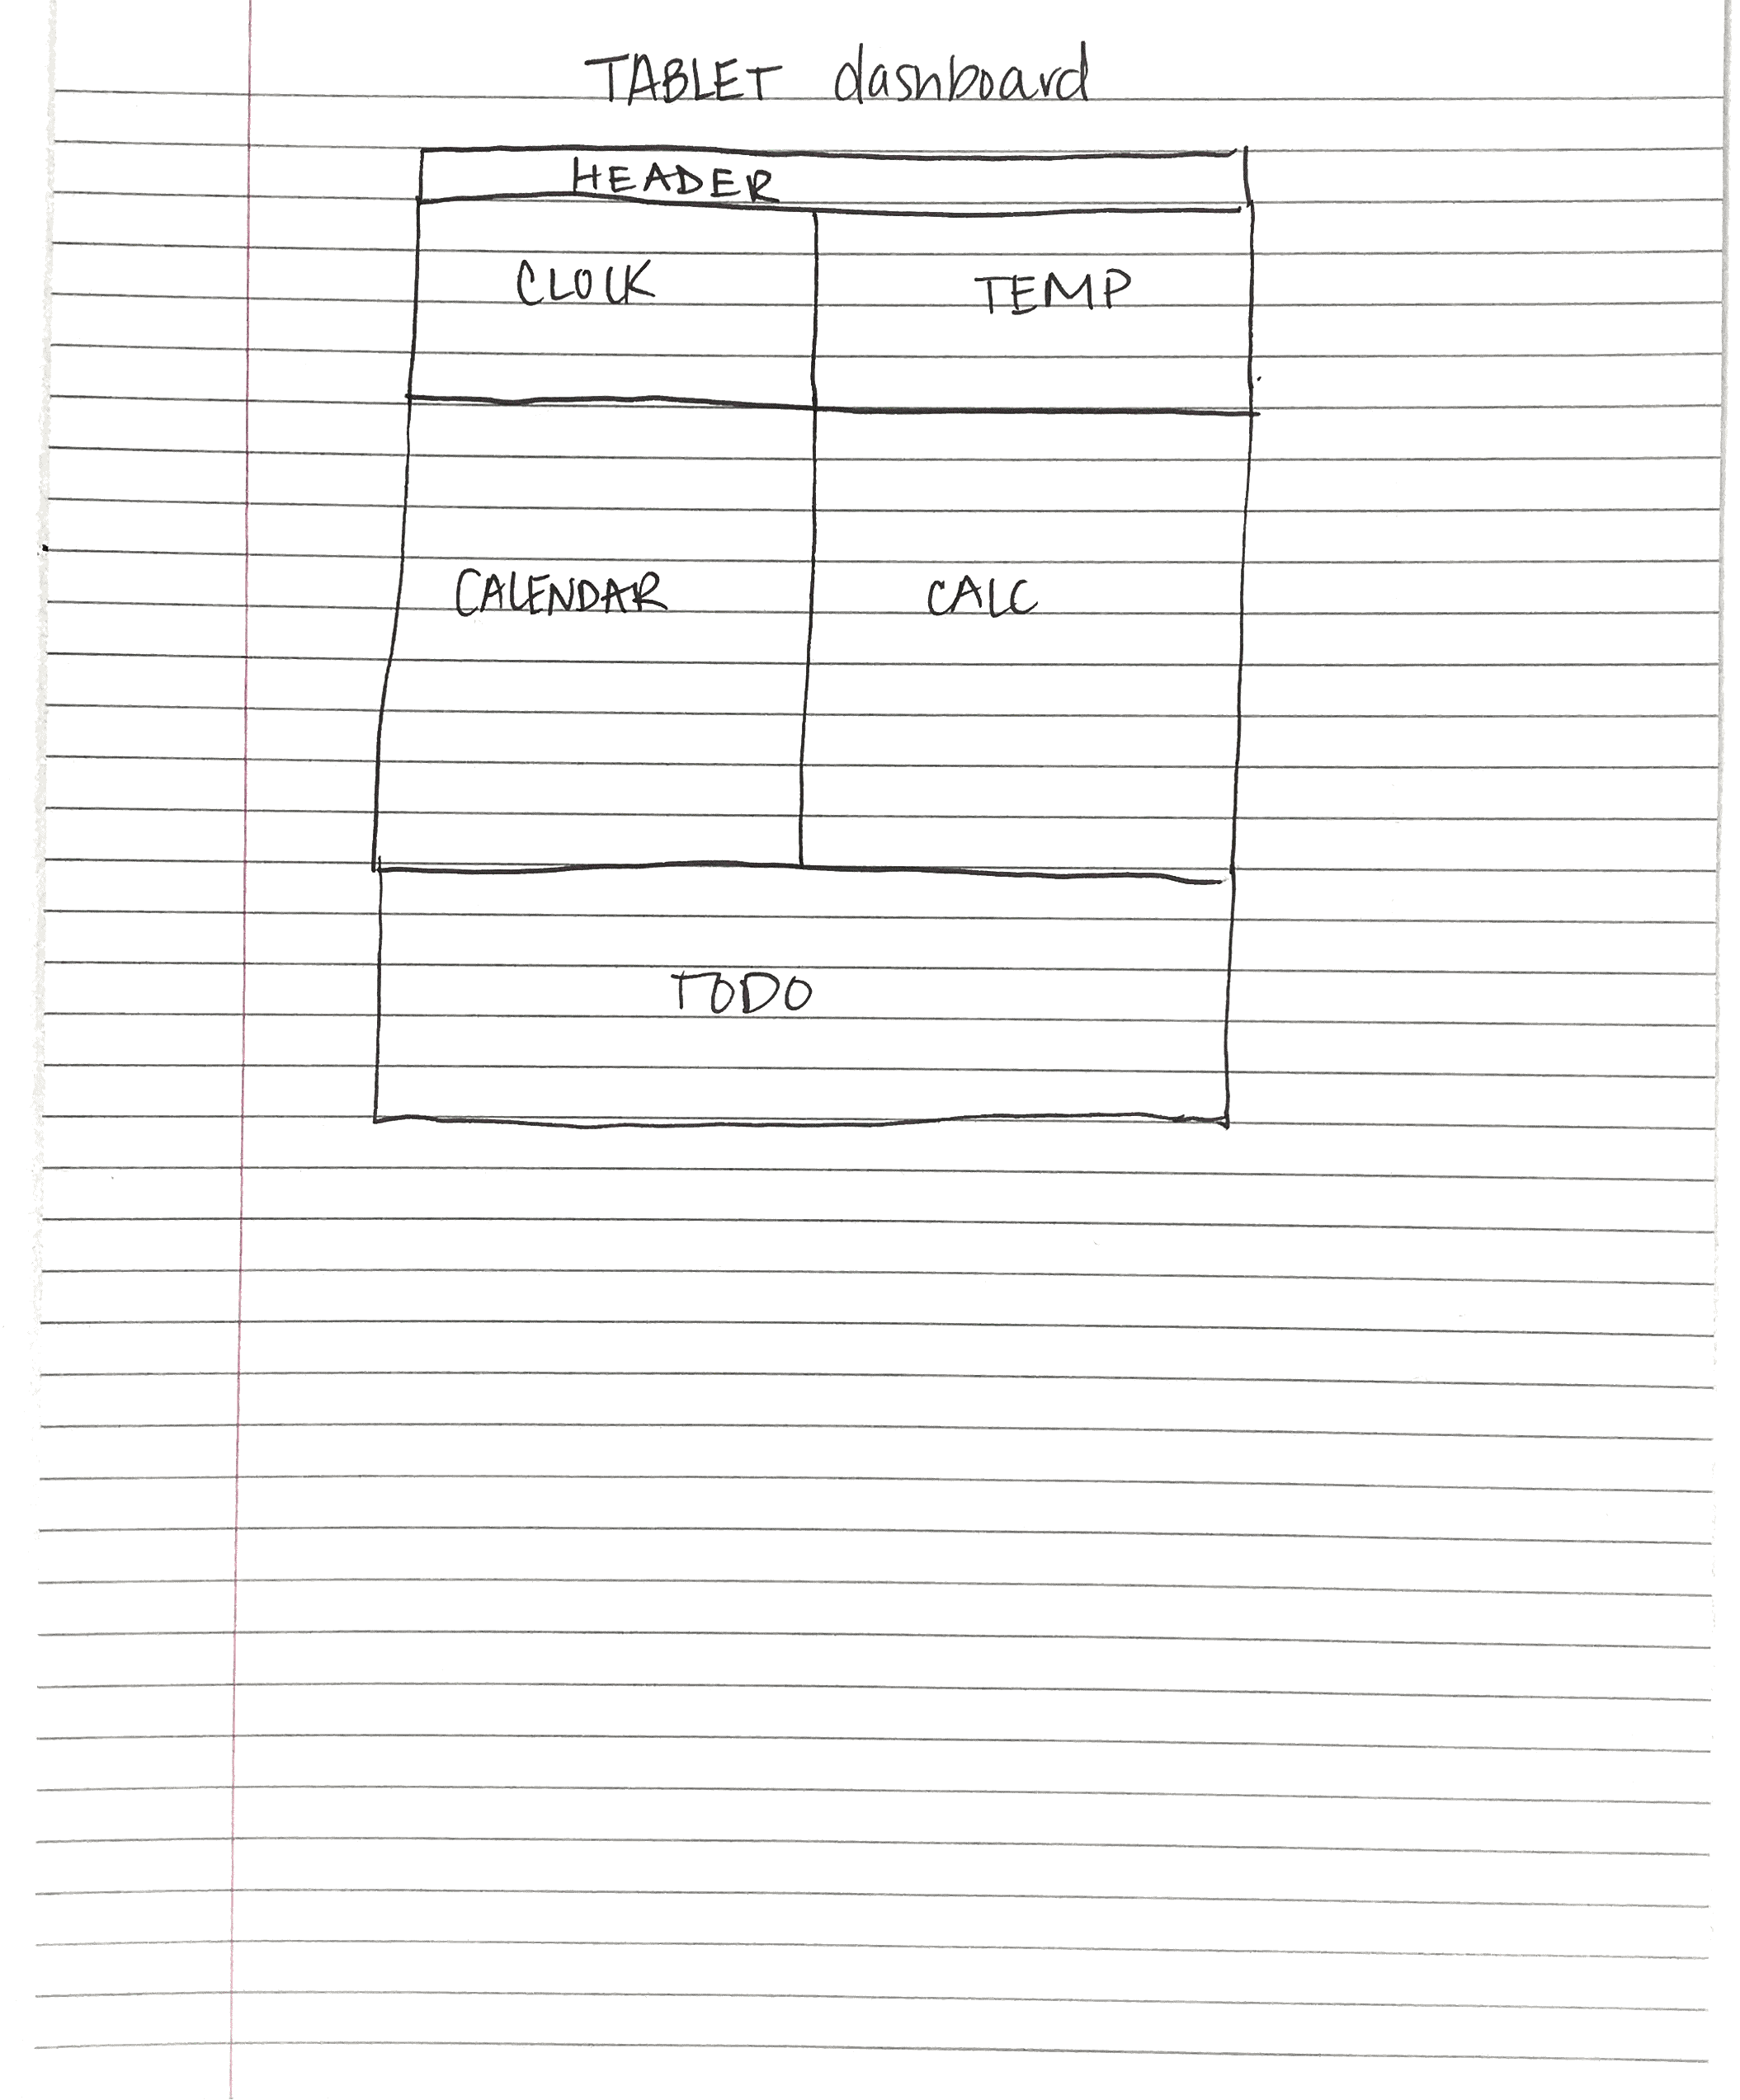 TABLET dashboard
HEADER
CLOCK
TEMP
CALENDAR
CALC
TODO